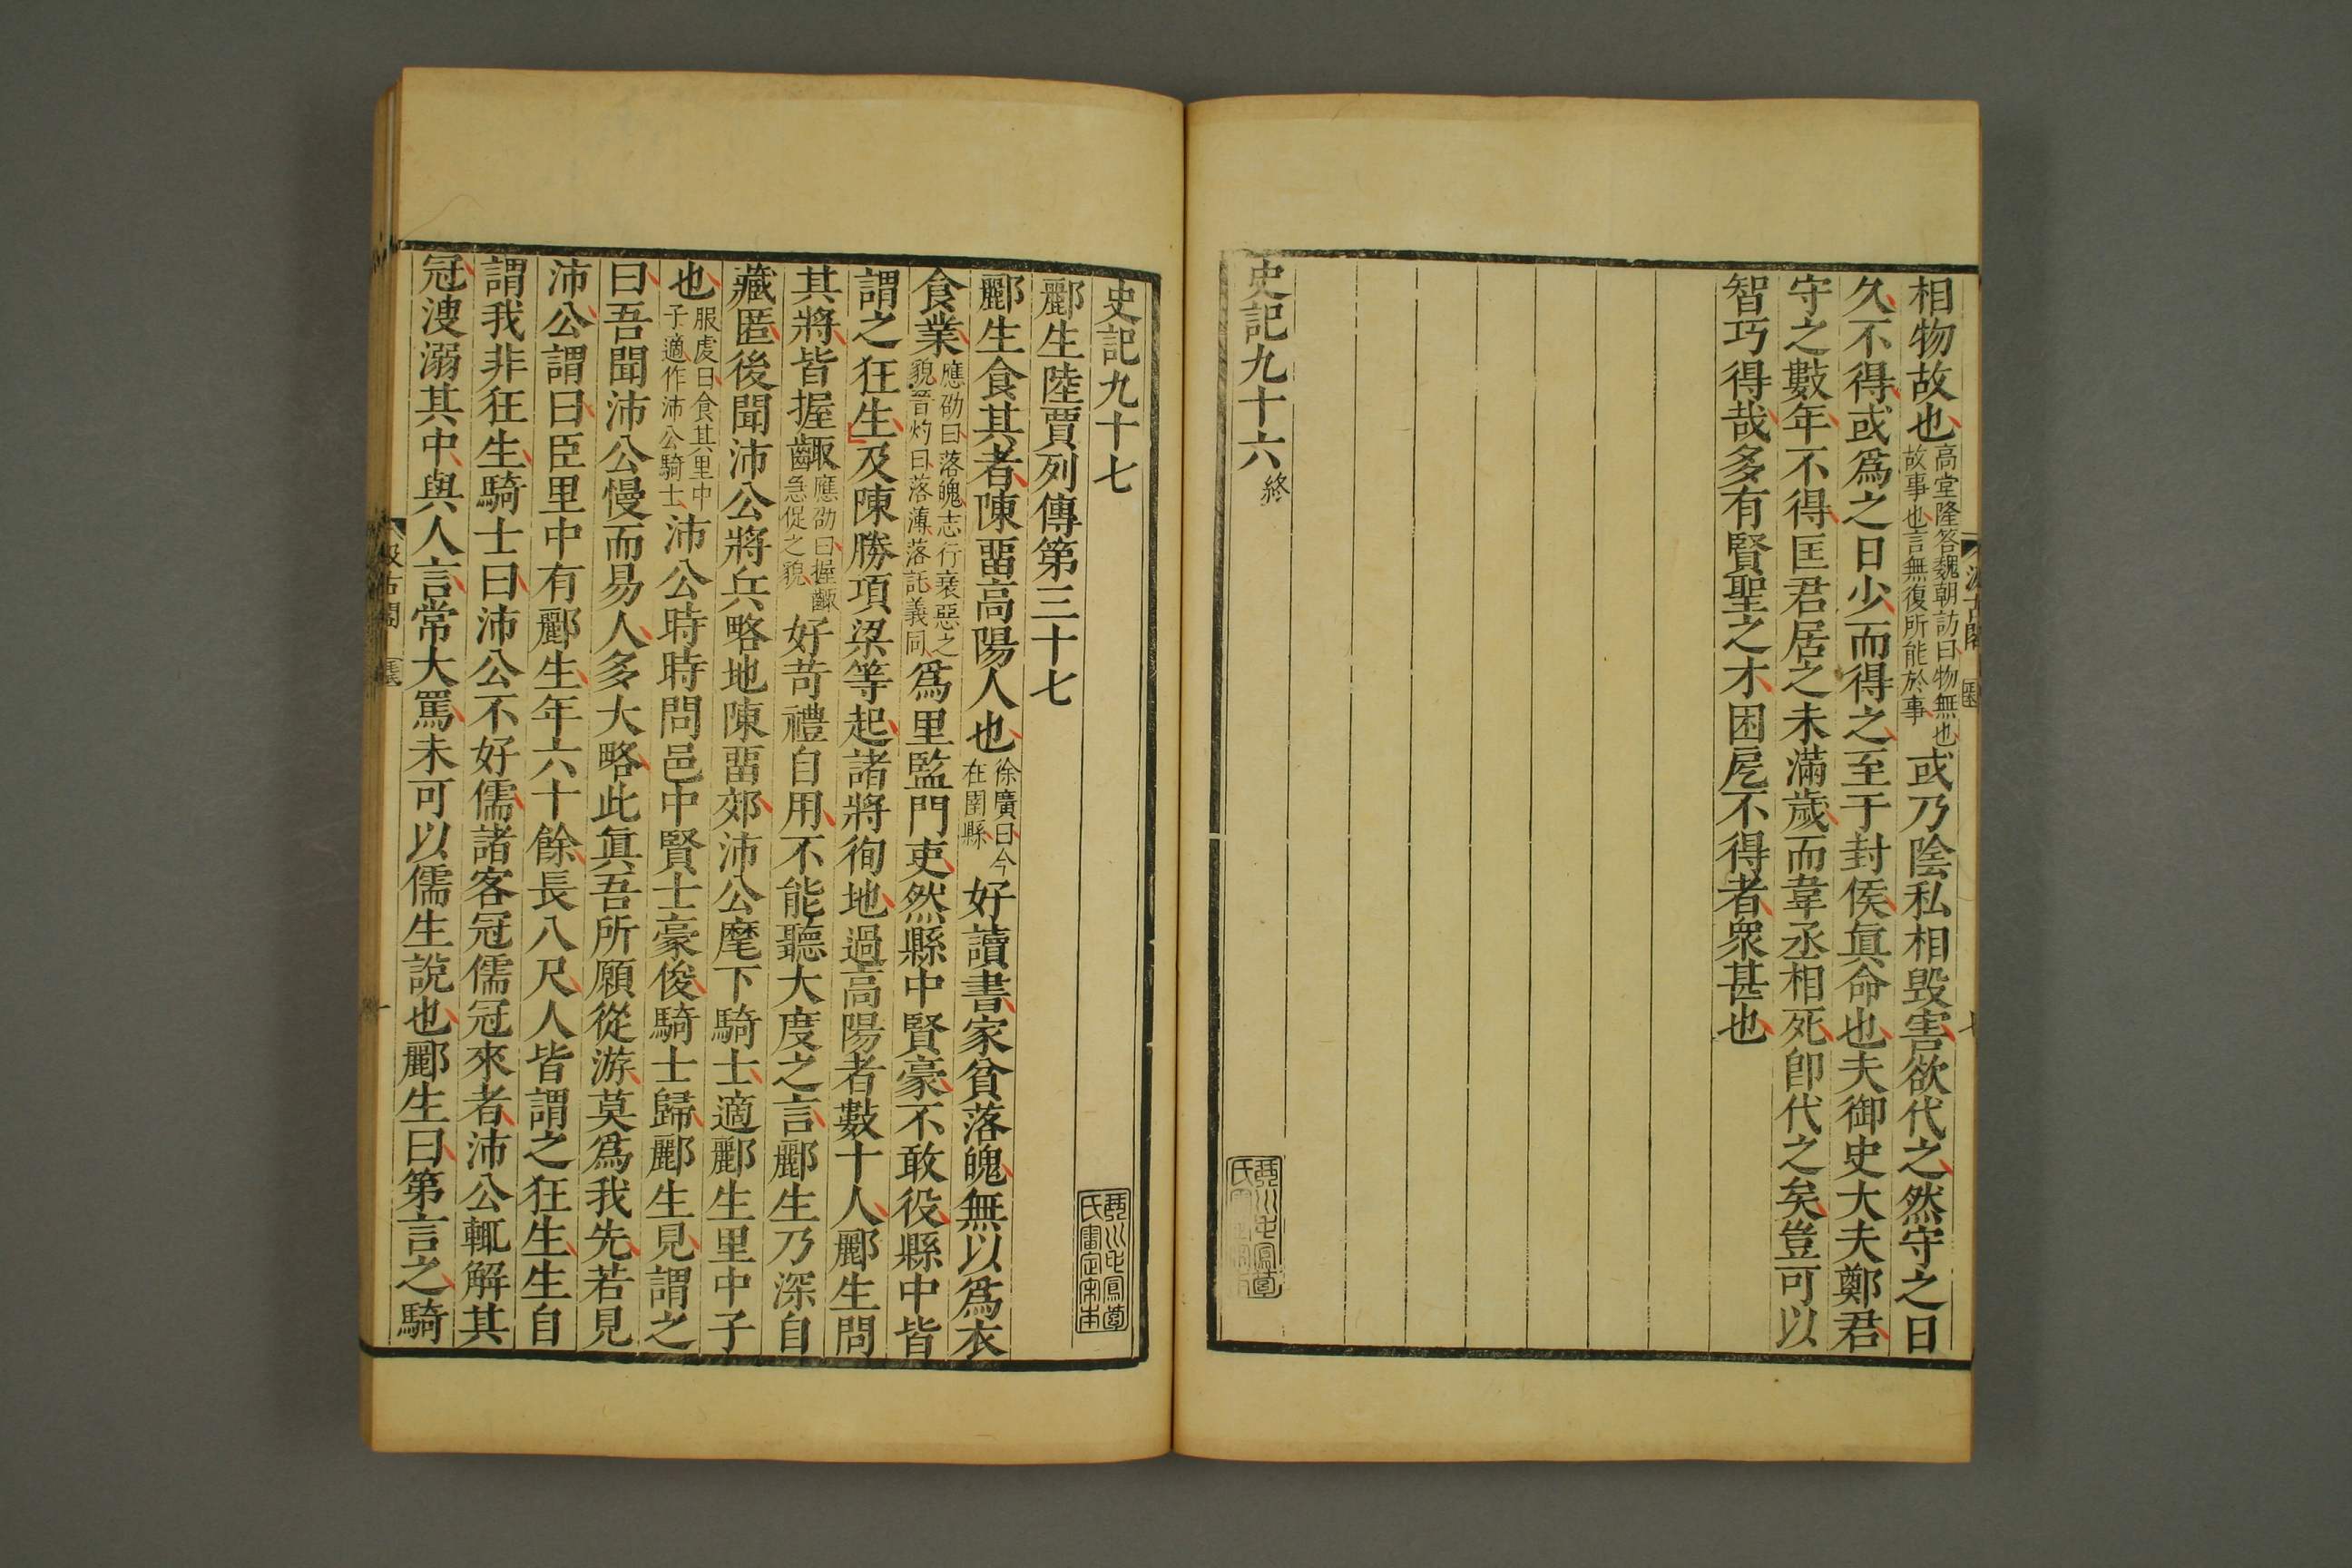 相物也故也高堂隆答魏朝訪曰物無也故事也言無復所能於事或乃陰私相毀害欲代之然守之日
久不得或爲之日少而得之至于封侯眞命也夫御史大夫鄭君
守之數年不得匡君居之未滿歲而韋丞相死卽代之矣豈可以
智巧得哉多有賢聖之才困戹不得者衆甚也
史記九十六終
史記九十七
酈生陸賈列傳第三十七
酈生食其者陳畱高陽人也徐廣曰今在圉縣好讀書家貧落魄無以爲衣
食業應劭曰落魄志行衰惡之貌晉灼曰落薄落託義同爲里監門吏然縣中賢豪不敢役縣中皆
謂之狂生及陳勝項梁等起諸將徇地過高陽者數十人酈生問
其將皆握齱應劭曰握齱急促之貌好苛禮自用不能聽大度之言酈生乃深自
藏匿後聞沛公將兵略地陳畱郊沛公麾下騎士適酈生里中子
也服虔曰食其里中子適作沛公騎士沛公時時問邑中賢士豪俊騎士歸酈生見謂之
曰吾聞沛公慢而易人多大略此眞吾所願從游莫爲我先若見
沛公謂曰臣里中有酈生年六十餘長八尺人皆謂之狂生生自
謂我非狂生騎士曰沛公不好儒諸客冠儒冠來者沛公輒解其
冠溲溺其中與人言常大罵未可以儒生說也酈生曰第言之騎